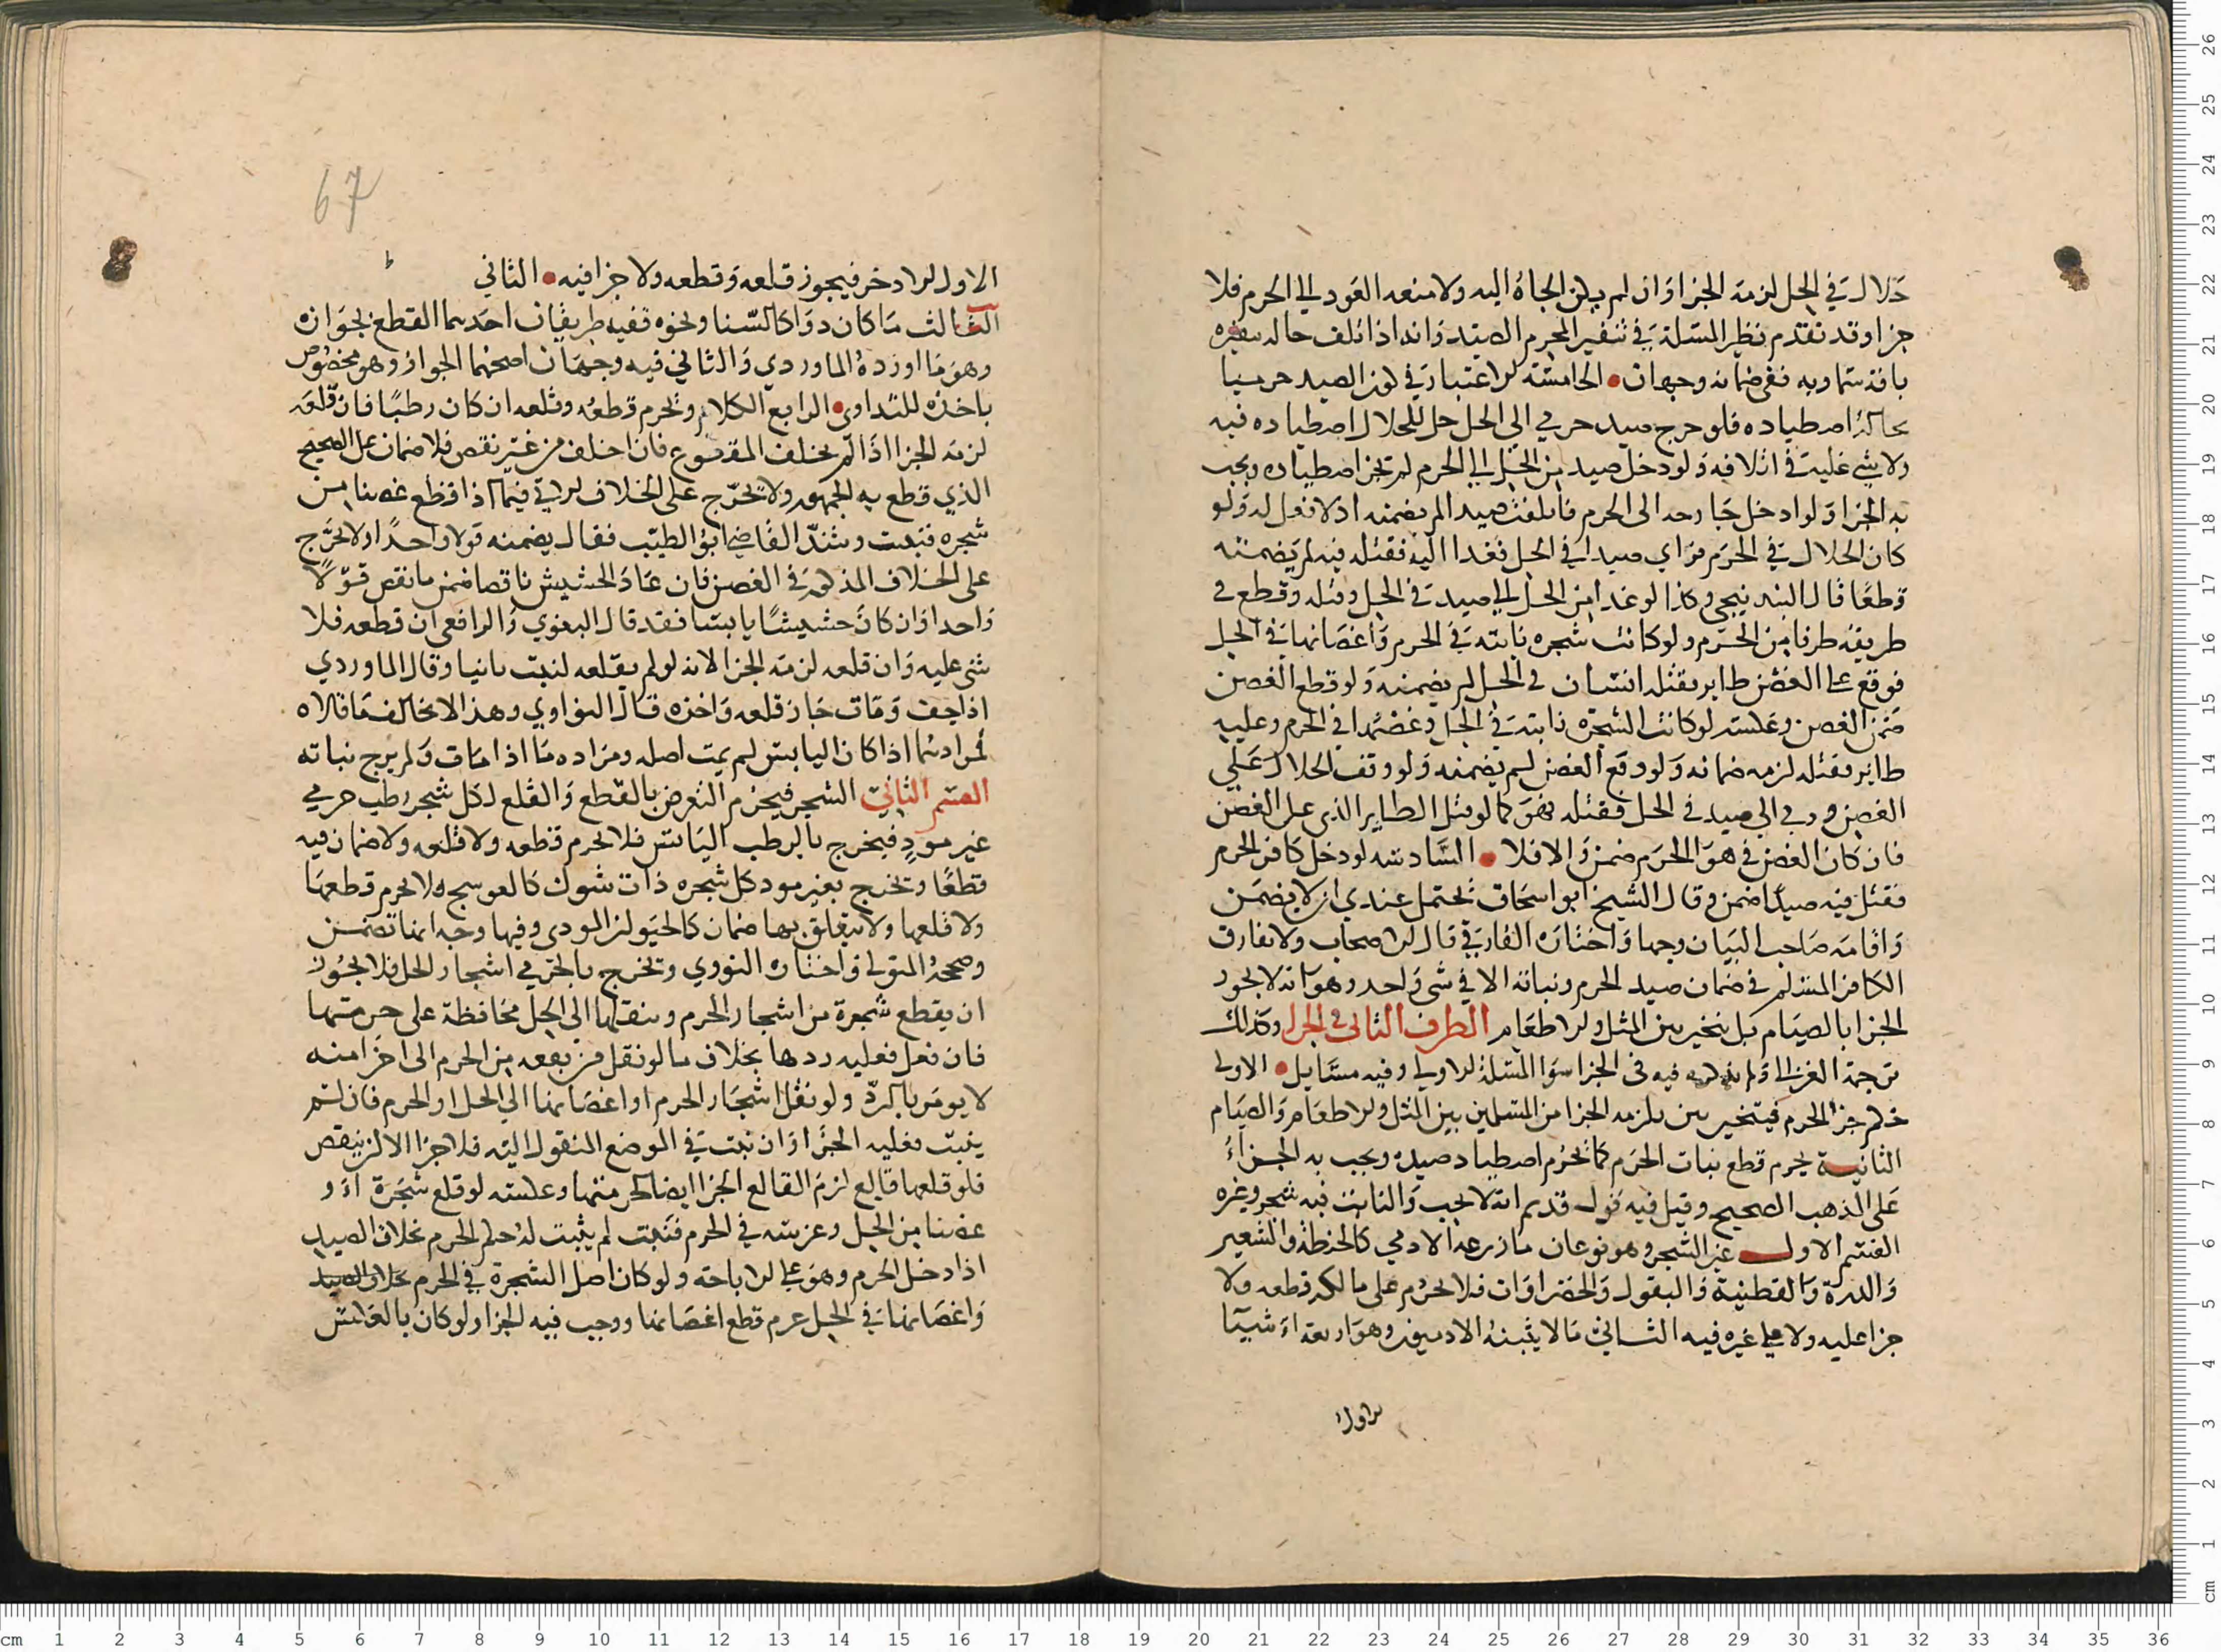 حلال في الحل لزمه الجزا وان لم يكن الجاه اليه ولا منعه العود الى الحرم فلا
جزا وقد تقدم نظير المسلة في تنفير المحرم الصيد وانه اذا تلف حال نفيره
بافة سماوية ففي ضمانه وجهان الخامسة الاعتبار في كون الصيد حرميا
بحالة اصطياده فلو خرج صيد حرمي الى الحل حل للحلال اصطياده فيه
ولا شي عليه في اتلافه ولو دخل صيد من الحل الى الحرم لم يجز اصطياده ويجب
به الجزا ولو ادخل جارحه الى الحرم فاتلفت صيدا لم يضمنه اذ لا فعل له ولو
كان الحلال في الحرم فراي صيدا في الحل فغدا اليه فقتله فيه لم يضمنه
قطعا قال البندنيجي وكذا لو غدا من الحل الى صيد في الحل وقتله وقطع في
طريقه طرفا من الحرم ولو كانت شجره نابته في الحرم واغصانها في الحل
فوقع على الغصن طاير فقتله انسان في الحل لم يضمنه ولو قطع الغصن
ضمن الغصن وعكسه لو كانت الشجره نابته في الحل وغصنها في الحرم وعليه
طاير فقتله لزمه ضمانه ولو قطع الغصن لم يضمنه ولو وقف الحلال على
الغصن ورمى الى صيد في الحل فقتله فهو كما لو قتل الطاير الذي على الغصن
فان كان الغصن في هوا الحرم ضمن والا فلا السادسه لو دخل كافر الحرم
فقتل فيه صيدا ضمن وقال الشيخ ابو اسحاق يحتمل عندي ان لا يضمن
واقامه صاحب البيان وجها واختاره الفارقي قال الاصحاب ولا يفارق
الكافر المسلم في ضمان صيد الحرم ونباته الا في شي واحد وهو انه لا يجوز
الجزا بالصيام بل يتخير بين المثل والاطعام الطرف الثاني في الجزا وكذلك
ترجمة الغزالي ولم يذكر فيه في الجزا سوا المسلة الاولى وفيه مسايل الاولى
حكم جزا الحرم فيتخير من يلزمه الجزا من المسلمين بين المثل والاطعام والصيام
الثانية يحرم قطع نبات الحرم كما يحرم اصطياد صيده ويجب به الجزاء
على المذهب الصحيح وقيل فيه قول قديم انه لا يجب والنابت فيه شجر وغيره
القسم الاول غير الشجر وهو نوعان ما زرعه الادمي كالحنطة والشعير
والذرة والقطنية والبقول والخضراوات فلا يحرم على مالكه قطعه ولا
جزا عليه ولا على غيره فيه الثاني ما لا يثبته الادميون وهو اربعة اشيا
الاول
67
الاول الاذخر فيجوز قلعه وقطعه ولا جزا فيه الثاني
الثالث ما كان دوا كالسنا ونحوه ففيه طريقان احدهما القطع بجوازه
وهو ما اورده الماوردي والثاني فيه وجهان اصحهما الجواز وهو مخصوص
باخذه للتداوي الرابع الكلا ويحرم قطعه وقلعه ان كان رطبا فان قلعه
لزمه الجزا اذا لم يخلف المقطوع فان اخلف من غير نقص فلا ضمان على الصحيح
الذي قطع به الجمهور ولا يتخرج على الخلاف الاتي فيما اذا قطع غصنا من
شجره فنبت وشذ القاضي ابو الطيب فقال يضمنه قولا واحدا ولا يخرج
على الخلاف المذكور في الغصن فان عاد الحشيش ناقصا ضمن ما نقص قولا
واحدا وان كان حشيشا يابسا فقد قال البغوي والرافعي ان قطعه فلا
شي عليه وان قلعه لزمه الجزا لانه لو لم يقلعه لنبت ثانيا وقال الماوردي
اذا جف ومات جاز قلعه واخذه قال النواوي وهذا لا يخالف ما قالاه
لمرادهما اذا كان اليابس لم يمت اصله ومراده ما اذا مات ولم يرج نباته
القسم الثاني الشجر فيحرم التعرض بالقطع والقلع لكل شجر رطب حرمي
غير موذ فيخرج بالرطب اليابس فلا يحرم قطعه ولا قلعه ولا ضمان فيه
قطعا ويخرج بغير موذ كل شجره ذات شوك كالعوسج فلا يحرم قطعها
ولا قلعها ولا يتعلق بها ضمان كالحيوان الموذي وفيها وجه انها تضمن
وصححه المتولي واختاره النووي ويخرج بالحرمي اشجار الحل فلا يجوز
ان يقطع شجرة من اشجار الحرم وينقلها الى الحل محافظة على حرمتها
فان فعل فعليه ردها بخلاف ما لو نقل من بقعه من الحرم الى اخرا منه
لا يومر بالرد ولو نقل اشجار الحرم او اغصانها الى الحل او الحرم فان لم
ينبت فعليه الجزا وان نبت في الموضع المنقول اليه فلا جزا الا ان ينقص
فلو قلعها قالع لزم القالع الجزا ايضا لحرمتها وعكسه لو قلع شجرة او
غصنا من الحل وغرسه في الحرم فنبت لم يثبت له حكم الحرم بخلاف الصيد
اذا دخل الحرم وهو على الاباحة ولو كان اصل الشجرة في الحرم بخلاف الصيد
واغصانها في الحل حرم قطع اغصانها ووجب فيه الجزا ولو كان بالعكس